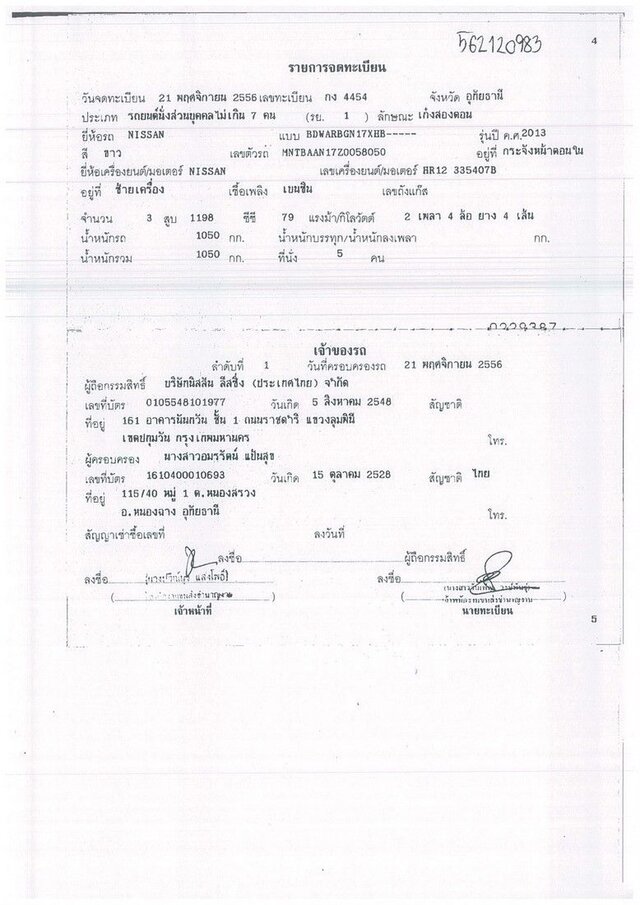 562120983
4
รายการจดทะเบียน
วันจดทะเบียน 21 พฤศจิกายน 2556 เลขทะเบียน กง 4454 จังหวัด อุทัยธานี
ประเภท รถยนต์นั่งส่วนบุคคลไม่เกิน 7 คน (รย. 1 ) ลักษณะ เก๋งสองตอน
ยี่ห้อรถ NISSAN แบบ BDWARBGN17XHB----- รุ่นปี ค.ศ.2013
สี ขาว เลขตัวรถ MNTBAAN17Z0058050 อยู่ที่ กระจังหน้าตอนใน
ยี่ห้อเครื่องยนต์/มอเตอร์ NISSAN เลขเครื่องยนต์/มอเตอร์ HR12 335407B
อยู่ที่ ซ้ายเครื่อง เชื้อเพลิง เบนซิน เลขถังแก๊ส
จำนวน 3 สูบ 1198 ซีซี 79 แรงม้า/กิโลวัตต์ 2 เพลา 4 ล้อ ยาง 4 เส้น
น้ำหนักรถ 1050 กก. น้ำหนักบรรทุก/น้ำหนักลงเพลา กก.
น้ำหนักรวม 1050 กก. ที่นั่ง 5 คน
เจ้าของรถ
ลำดับที่ 1 วันที่ครอบครองรถ 21 พฤศจิกายน 2556
ผู้ถือกรรมสิทธิ์ บริษัทนิสสัน ลีสซิ่ง (ประเทศไทย) จำกัด
เลขที่บัตร 0105548101977 วันเกิด 5 สิงหาคม 2548 สัญชาติ
ที่อยู่ 161 อาคารนันทวัน ชั้น 1 ถนนราชดำริ แขวงลุมพินี
เขตปทุมวัน กรุงเทพมหานคร โทร.
ผู้ครอบครอง นางสาวอมรรัตน์ แป้นสุข
เลขที่บัตร 1610400010693 วันเกิด 15 ตุลาคม 2528 สัญชาติ ไทย
ที่อยู่ 115/40 หมู่ 1 ต.หนองสรวง
อ.หนองฉาง อุทัยธานี โทร.
สัญญาเช่าซื้อเลขที่ ลงวันที่
ลงชื่อ ผู้ถือกรรมสิทธิ์
ลงชื่อ ลงชื่อ
เจ้าหน้าที่ นายทะเบียน
5